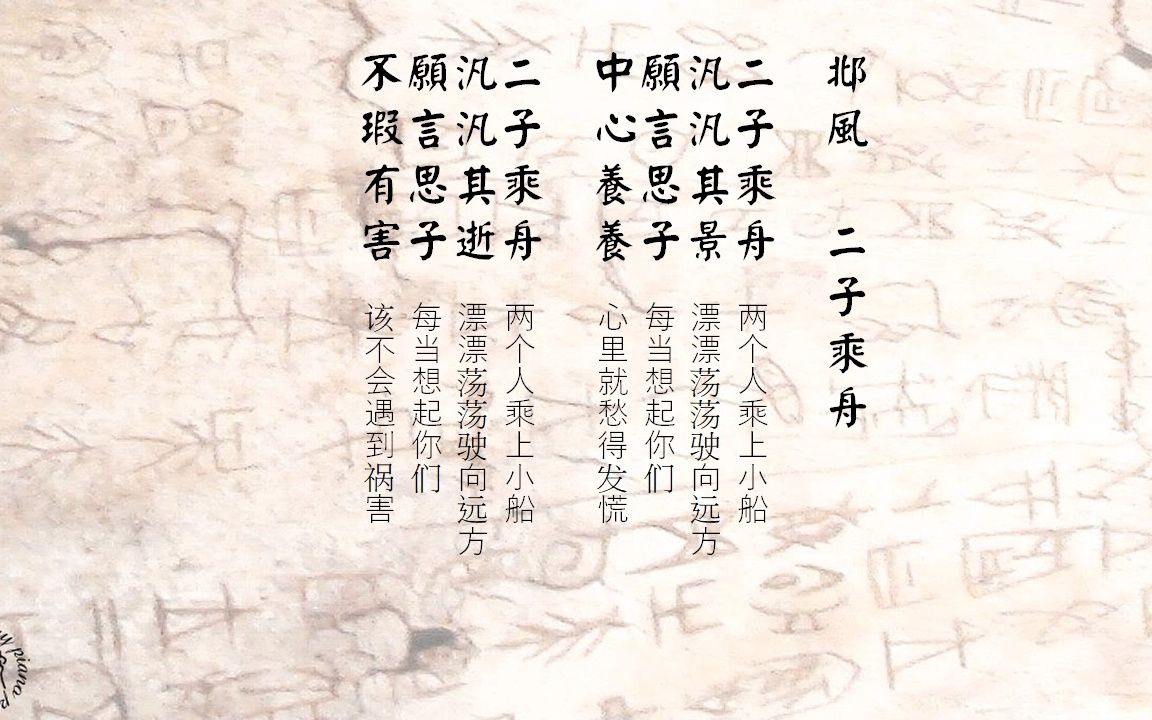 邶風 二子乘舟
二子乘舟 两个人乘上小船
汎汎其景 漂漂荡荡驶向远方
願言思子 每当想起你们
中心養養 心里就愁得发慌
二子乘舟 两个人乘上小船
汎汎其逝 漂漂荡荡驶向远方
願言思子 每当想起你们
不瑕有害 该不会遇到祸害
piano